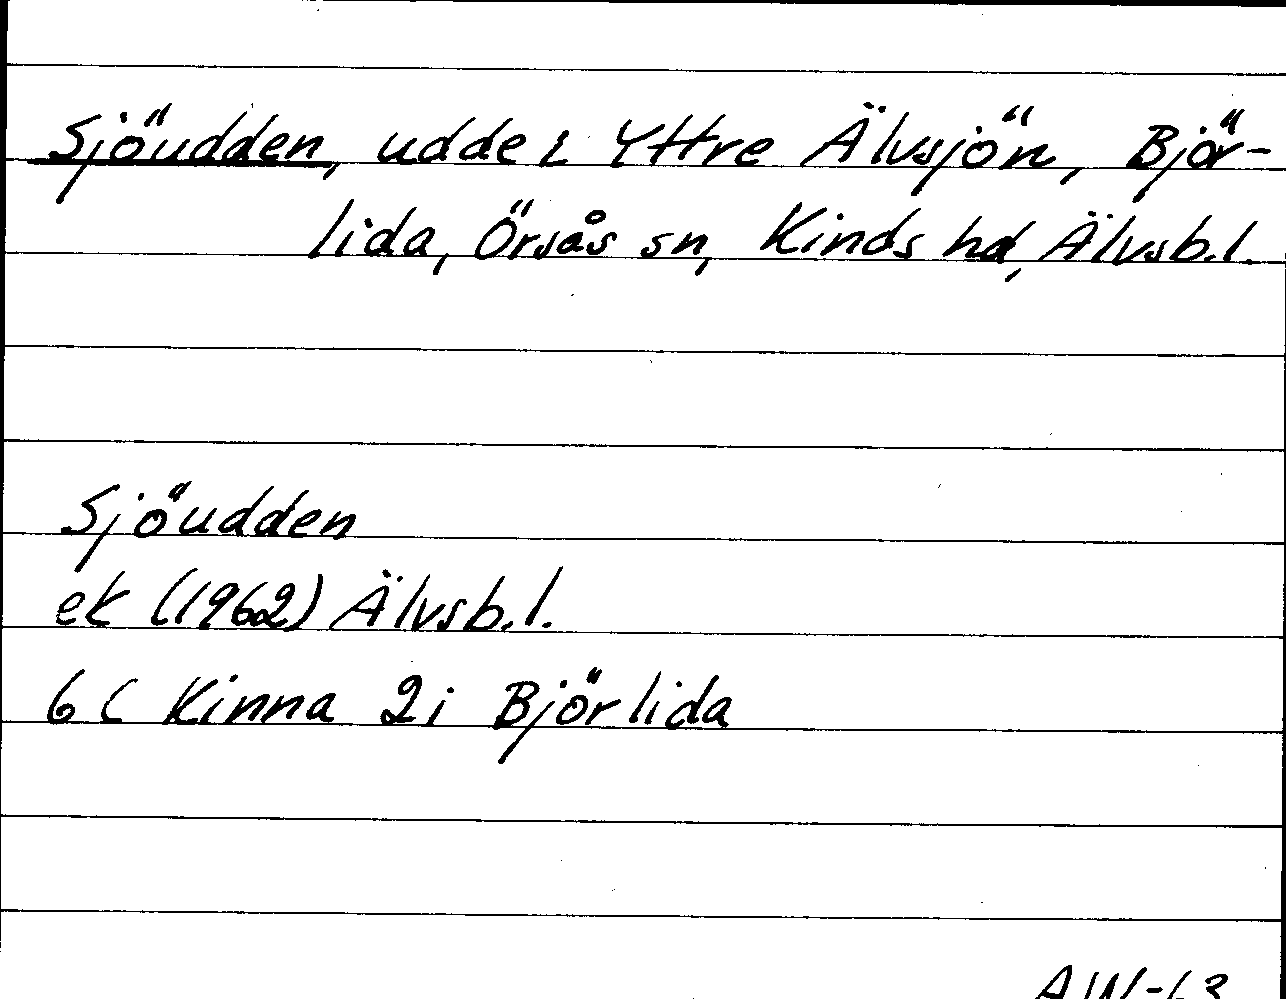 Sjöudden, udde i Yttre Älvsjön, Björ-
lida, Örsås sn, Kinds hd, Älvsb.l.
Sjöudden
ek (1962) Älvsb.l.
6C Kinna 2i Björlida
AW-63